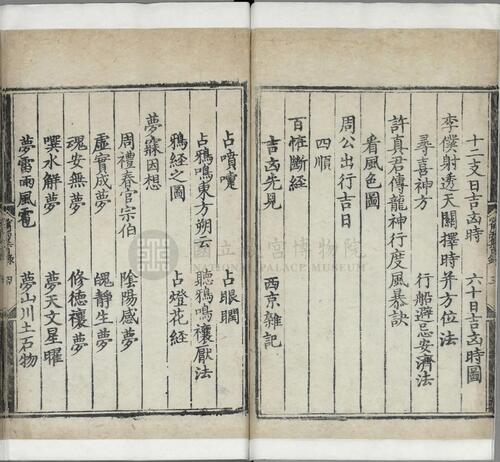 十二支日吉凶時　六十日吉凶時圖
李僕射透天關擇時并方位法
尋喜神方　行船避忌安濟法
許真君傳龍神行度風暴訣
看風色圖
周公出行吉日
四順
百怪斷經
吉凶先見　西京雜記
占噴嚏　占眼瞤
占鴉鳴東方朔云　聽鴉鳴禳厭法
鴉經之圖　占燈花經
夢寐因想
周禮春官宗伯　陰陽感夢
虛實成夢　魄靜生夢
魂安無夢　修德禳夢
噀水解夢　夢天文星曜
夢雷雨風雹　夢山川土石物
國立故宮博物院
NATIONAL PALACE MUSEUM